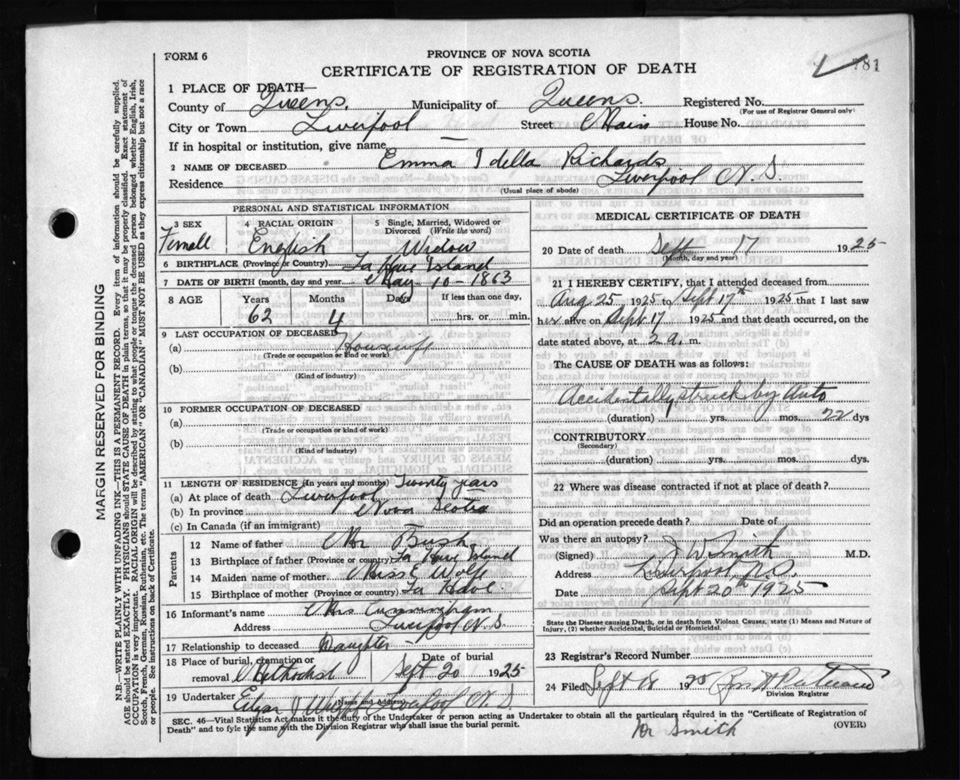 781
FORM 6
PROVINCE OF NOVA SCOTIA
CERTIFICATE OF REGISTRATION OF DEATH
1 PLACE OF DEATH—
County of Queens. Municipality of Queens. Registered No.
(For use of Registrar General only)
City or Town Liverpool Street Main House No.
If in hospital or institution, give name
2 NAME OF DECEASED Emma Idella Richards
Residence Liverpool N. S.
(Usual place of abode)
PERSONAL AND STATISTICAL INFORMATION
3 SEX 4 RACIAL ORIGIN 5 Single, Married, Widowed or Divorced (Write the word)
Femall English Widow
6 BIRTHPLACE (Province or Country) La Have Island
7 DATE OF BIRTH (month, day and year) May-10-1863
8 AGE Years Months Days If less than one day,
62 4 hrs. or min.
9 LAST OCCUPATION OF DECEASED
(a) Housewiff
(Trade or occupation and kind or work)
(b)
(Kind of industry)
10 FORMER OCCUPATION OF DECEASED
(a)
(Trade or occupation and kind of work)
(b)
(Kind of industry)
11 LENGTH OF RESIDENCE (In years and months) Twenty years
(a) At place of death Liverpool
(b) In province Nova Scotia
(c) In Canada (if an immigrant)
Parents
12 Name of father Mr Bush
13 Birthplace of father (Province or country) La Have Island
14 Maiden name of mother Miss E Wolfe
15 Birthplace of mother (Province or country) La Have
16 Informant's name Mrs Cunningham
Address Liverpool N. S.
17 Relationship to deceased Daughter
18 Place of burial, cremation or removal Methodist Date of burial Sept 20 1925
19 Undertaker Liverpool N. S
(Name and Address)
MEDICAL CERTIFICATE OF DEATH
20 Date of death Sept 17 1925
(Month, day and year)
21 I HEREBY CERTIFY, that I attended deceased from
Aug 25 1925 to Sept 17 1925 that I last saw
her alive on Sept 17 1925 and that death occurred, on
date stated above, at 2 a. m.
The CAUSE OF DEATH was as follows:
Accidentally struck by Auto
(duration) yrs. 0 mos. 22 dys
CONTRIBUTORY
(Secondary)
(duration) yrs. mos. dys.
22 Where was disease contracted if not at place of death?
Did an operation precede death? Date of
Was there an autopsy?
(Signed) J W Smith M.D.
Address Liverpool N.S.
Date Sept 20th 1925
State the Disease causing Death, or in death from Violent Causes, state (1) Means and Nature of Injury, (2) whether Accidental, Suicidal or Homicidal.
23 Registrar's Record Number
24 Filed Sept 18 1925
Division Registrar
SEC. 46—Vital Statistics Act makes it the duty of the Undertaker or person acting as Undertaker to obtain all the particulars required in the "Certificate of Registration of
Death" and to fyle the same with the Division Registrar who shall issue the burial permit.
(OVER)
Dr Smith
MARGIN RESERVED FOR BINDING
N.B.—WRITE PLAINLY WITH UNFADING INK—THIS IS A PERMANENT RECORD. Every item of information should be carefully supplied.
AGE should be stated EXACTLY. PHYSICIANS should STATE CAUSE OF DEATH in plain terms, so that it may be properly classified. Exact statement of
OCCUPATION is very important. RACIAL ORIGIN will be described by stating to what people or tongue the deceased person belonged whether English, Irish,
Scotch, French, German, Russian, Ruthenian, etc. The terms "AMERICAN" OR "CANADIAN" MUST NOT BE USED as they express citizenship but not a race
or people. See instructions on back of Certificate.